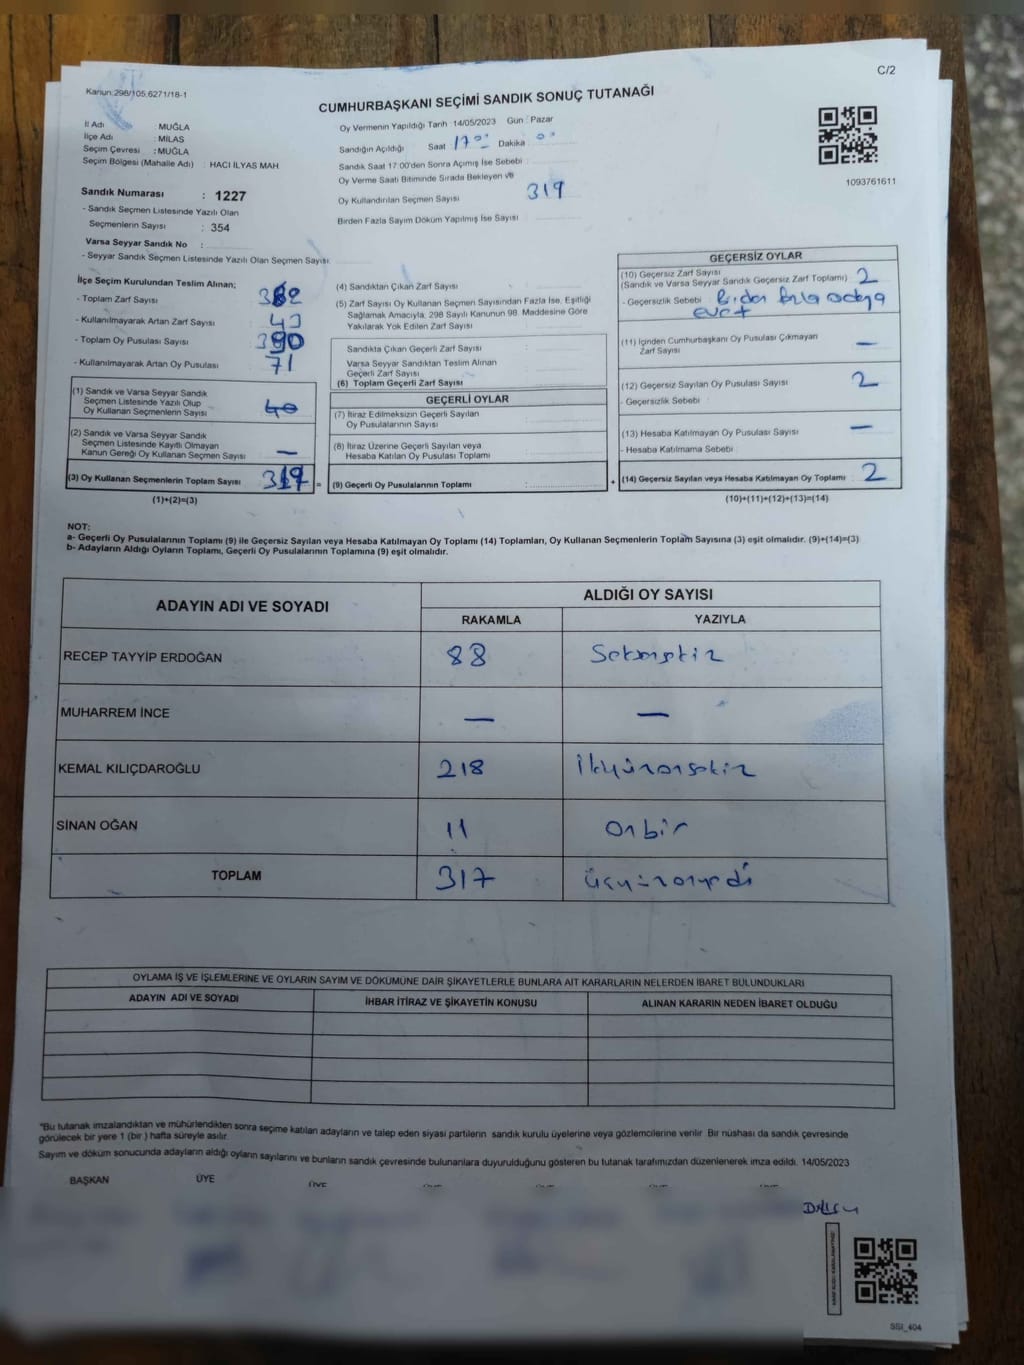 C/2
Kanun:298/105,6271/18-1
CUMHURBAŞKANI SEÇİMİ SANDIK SONUÇ TUTANAĞI
İl Adı : MUĞLA
İlçe Adı : MİLAS
Seçim Çevresi : MUĞLA
Seçim Bölgesi (Mahalle Adı) : HACI İLYAS MAH
Sandık Numarası : 1227
- Sandık Seçmen Listesinde Yazılı Olan
Seçmenlerin Sayısı : 354
Varsa Seyyar Sandık No :
- Seyyar Sandık Seçmen Listesinde Yazılı Olan Seçmen Sayısı:
Oy Vermenin Yapıldığı Tarih :14/05/2023 Gün : Pazar
Sandığın Açıldığı Saat 17 00 Dakika 00
Sandık Saat 17:00'den Sonra Açımış İse Sebebi :
Oy Verme Saati Bitiminde Sırada Bekleyen ve
Oy Kullandırılan Seçmen Sayısı 319
Birden Fazla Sayım Döküm Yapılmış İse Sayısı
1093761611
İlçe Seçim Kurulundan Teslim Alınan;
- Toplam Zarf Sayısı
- Kullanılmayarak Artan Zarf Sayısı 43
- Toplam Oy Pusulası Sayısı 390
- Kullanılmayarak Artan Oy Pusulası 71
(1) Sandık ve Varsa Seyyar Sandık
Seçmen Listesinde Yazılı Olup
Oy Kullanan Seçmenlerin Sayısı 40
(2) Sandık ve Varsa Seyyar Sandık
Seçmen Listesinde Kayıtlı Olmayan
Kanun Gereği Oy Kullanan Seçmen Sayısı —
(3) Oy Kullanan Seçmenlerin Toplam Sayısı 319 =
(1)+(2)=(3)
(4) Sandıktan Çıkan Zarf Sayısı :
(5) Zarf Sayısı Oy Kullanan Seçmen Sayısından Fazla İse, Eşitliği
Sağlamak Amacıyla, 298 Sayılı Kanunun 98. Maddesine Göre
Yakılarak Yok Edilen Zarf Sayısı
Sandıkta Çıkan Geçerli Zarf Sayısı :
Varsa Seyyar Sandıktan Teslim Alınan
Geçerli Zarf Sayısı :
(6) Toplam Geçerli Zarf Sayısı
GEÇERLİ OYLAR
(7) İtiraz Edilmeksizin Geçerli Sayılan
Oy Pusulalarının Sayısı
(8) İtiraz Üzerine Geçerli Sayılan veya
Hesaba Katılan Oy Pusulası Toplamı
(9) Geçerli Oy Pusulalarının Toplamı : +
GEÇERSİZ OYLAR
(10) Geçersiz Zarf Sayısı
(Sandık ve Varsa Seyyar Sandık Geçersiz Zarf Toplamı) 2
- Geçersizlik Sebebi : Birden fazla adaya
evet
(11) İçinden Cumhurbaşkanı Oy Pusulası Çıkmayan
Zarf Sayısı —
(12) Geçersiz Sayılan Oy Pusulası Sayısı 2
- Geçersizlik Sebebi
(13) Hesaba Katılmayan Oy Pusulası Sayısı —
- Hesaba Katılmama Sebebi
(14) Geçersiz Sayılan veya Hesaba Katılmayan Oy Toplamı 2
(10)+(11)+(12)+(13)=(14)
NOT:
a- Geçerli Oy Pusulalarının Toplamı (9) ile Geçersiz Sayılan veya Hesaba Katılmayan Oy Toplamı (14) Toplamları, Oy Kullanan Seçmenlerin Toplam Sayısına (3) eşit olmalıdır. (9)+(14)=(3)
b- Adayların Aldığı Oyların Toplamı, Geçerli Oy Pusulalarının Toplamına (9) eşit olmalıdır.
ADAYIN ADI VE SOYADI
ALDIĞI OY SAYISI
RAKAMLA YAZIYLA
RECEP TAYYİP ERDOĞAN 88 Seksensekiz
MUHARREM İNCE — —
KEMAL KILIÇDAROĞLU 218 İkiyüzonsekiz
SİNAN OĞAN 11 Onbir
TOPLAM 317 Üçyüzonyedi
OYLAMA İŞ VE İŞLEMLERİNE VE OYLARIN SAYIM VE DÖKÜMÜNE DAİR ŞİKAYETLERLE BUNLARA AİT KARARLARIN NELERDEN İBARET BULUNDUKLARI
ADAYIN ADI VE SOYADI İHBAR İTİRAZ VE ŞİKAYETİN KONUSU ALINAN KARARIN NEDEN İBARET OLDUĞU
"Bu tutanak imzalandıktan ve mühürlendikten sonra seçime katılan adayların ve talep eden siyasi partilerin sandık kurulu üyelerine veya gözlemcilerine verilir. Bir nüshası da sandık çevresinde
görülecek bir yere 1 (bir ) hafta süreyle asılır.
Sayım ve döküm sonucunda adayların aldığı oyların sayılarını ve bunların sandık çevresinde bulunanlara duyurulduğunu gösteren bu tutanak tarafımızdan düzenlenerek imza edildi. 14/05/2023
BAŞKAN ÜYE ÜYE
SSI_404